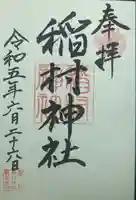 奉拝
稲村神社
令和五年六月二十六日